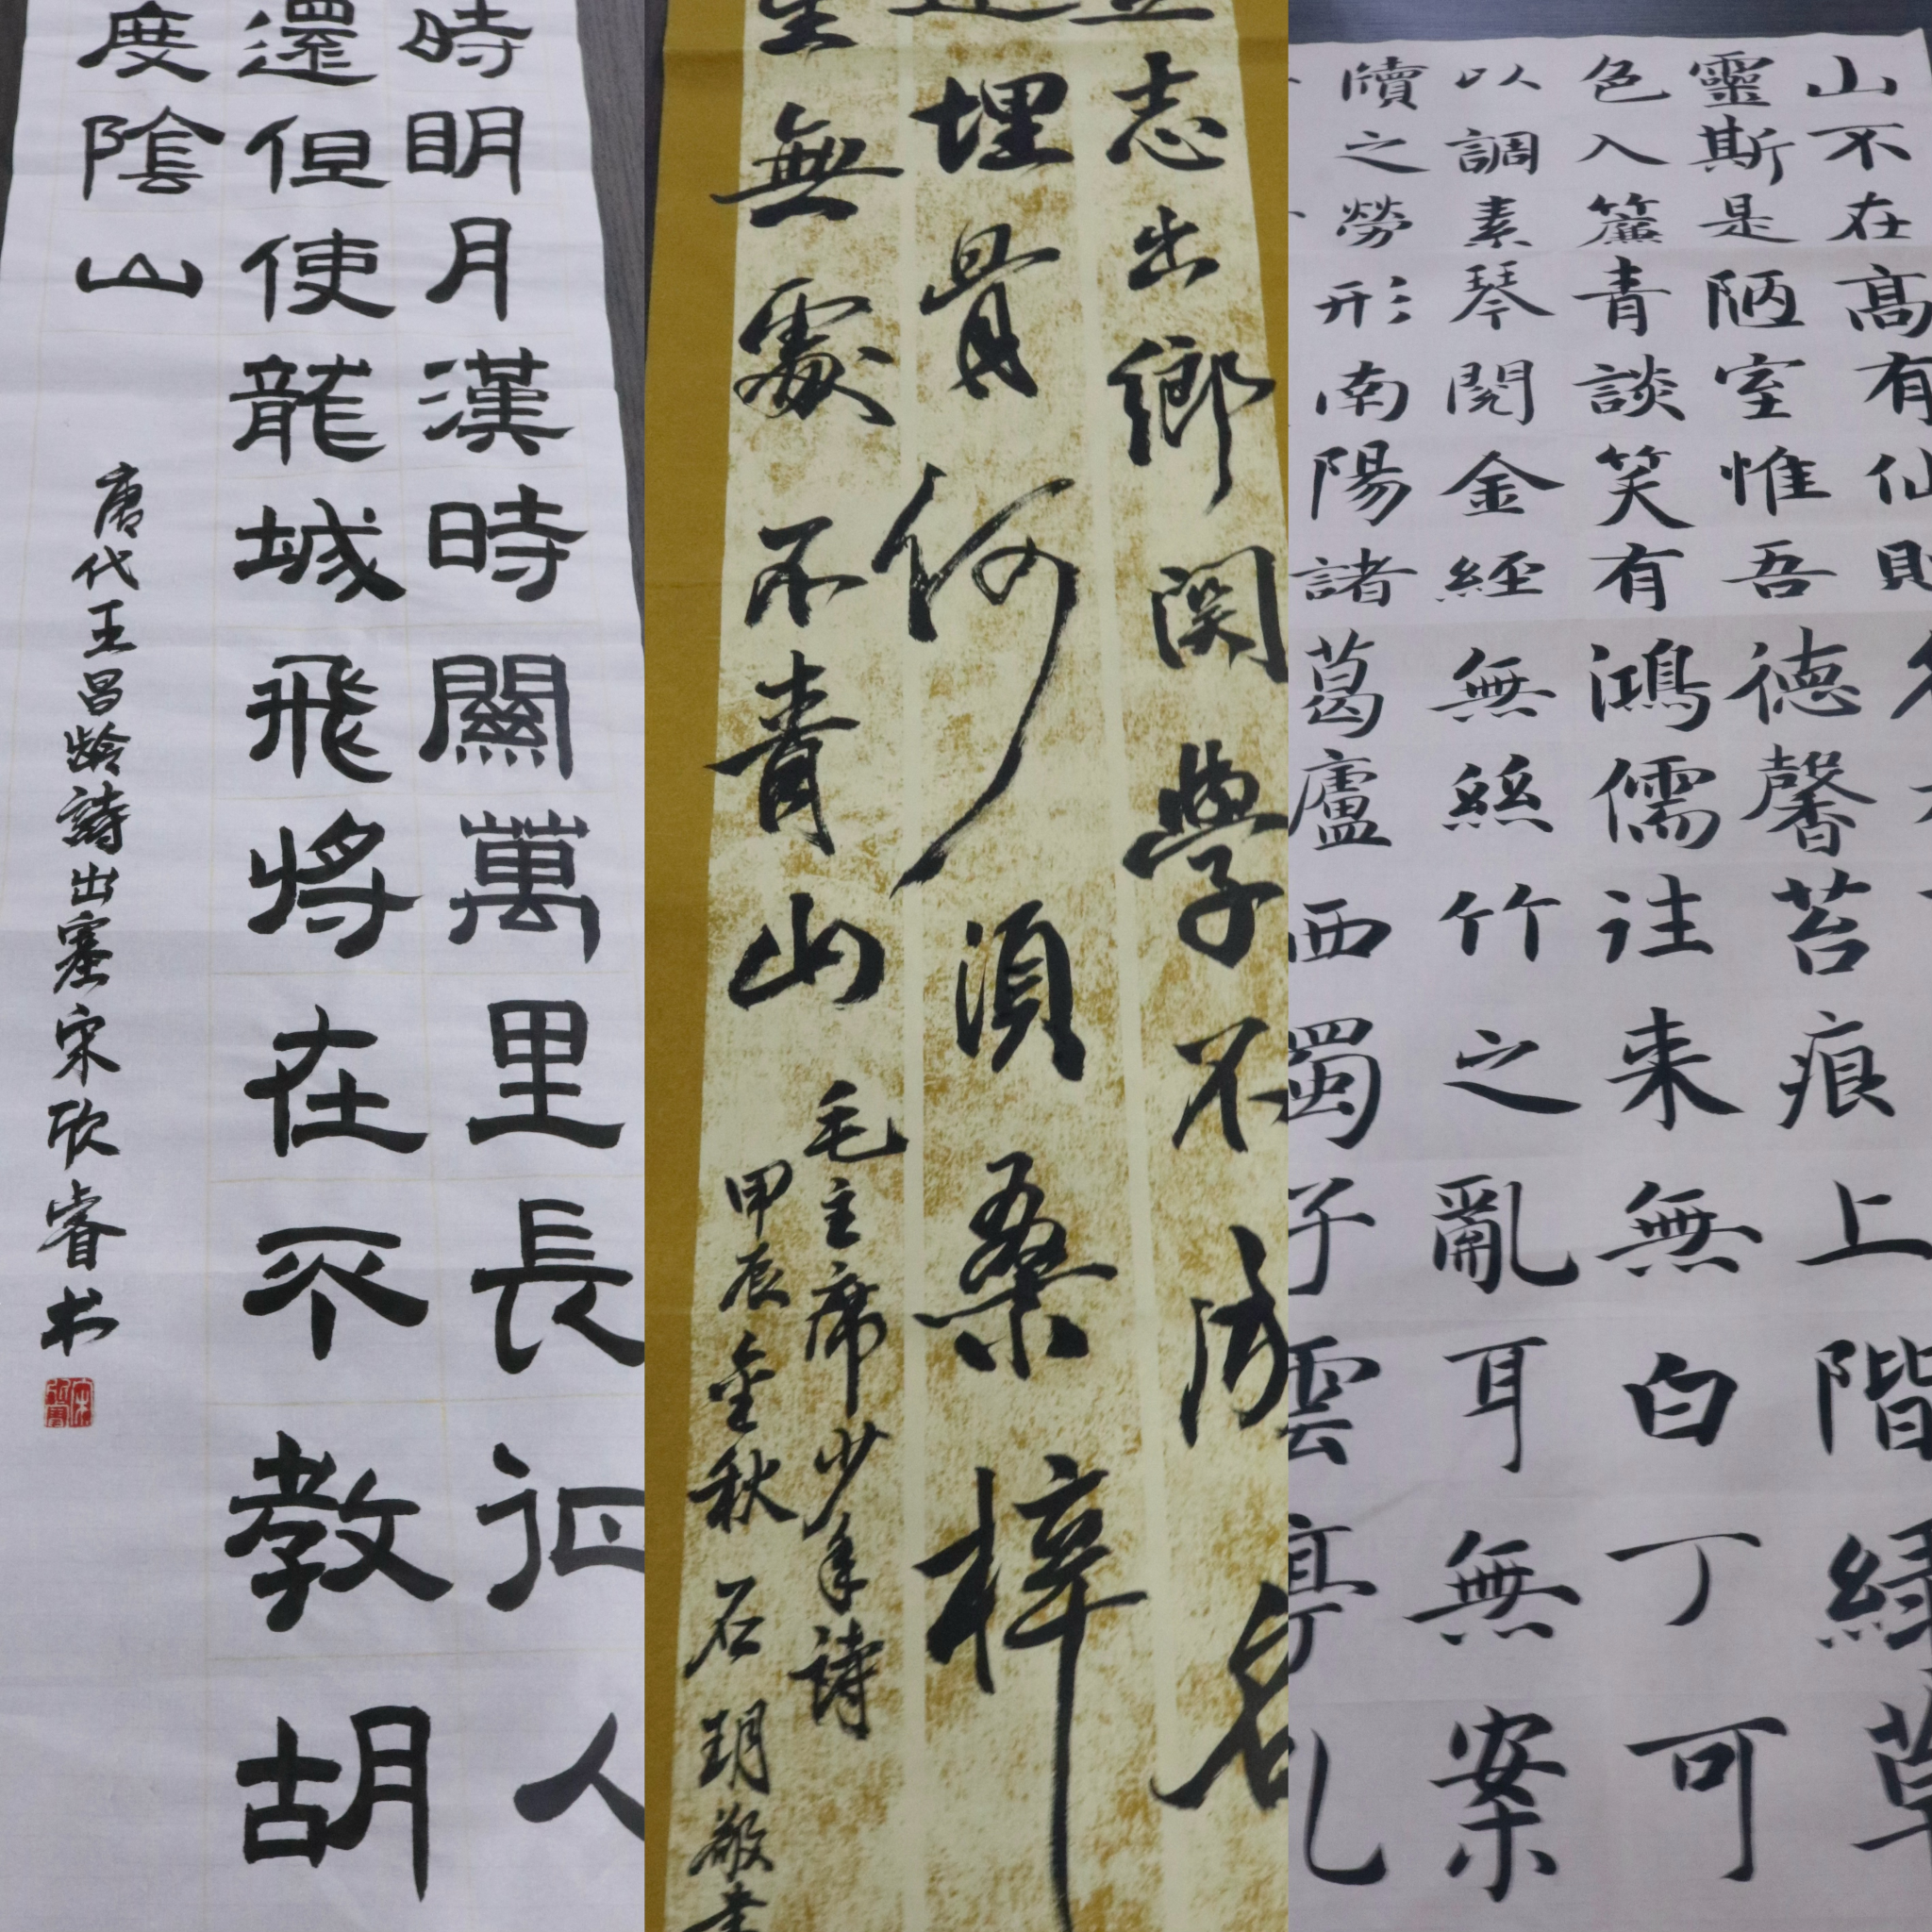 時明月漢時關萬里長征人
還但使龍城飛將在不教胡
度陰山
唐代王昌龄詩出塞宋欣睿书
志出鄉関學不成名
埋骨何須桑梓
生無處不青山
毛主席少年詩
甲辰金秋石玥敬書
山不在高有仙則
靈斯是陋室惟吾德馨苔痕上階緑草
色入簾青談笑有鴻儒往来無白丁可
以調素琴閱金經無絲竹之亂耳無案
牘之勞形南陽諸葛廬西蜀子雲亭孔